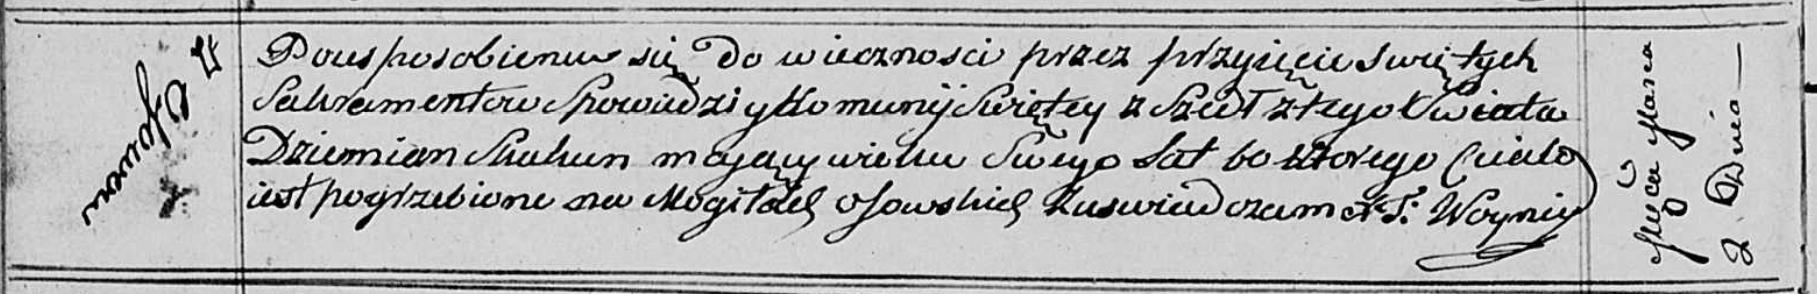 z Osowa
Po usposobieniu się do wieczności przez przyięcie swiętych
Sakramentow Spowiedzi y Komunij Swiętey z Szedł z tego Swiata
Dziemian Skakun maiący wieku Swego Lat 60 ktorego Ciało
iest pogrzebione na Mogiłach osowskich zaswiadczam X. T. Woynicz
Mca Marca
2 Dnia